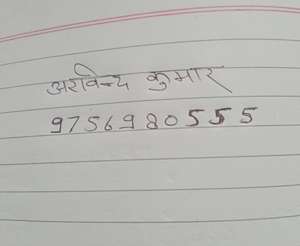 अरविन्द कुमार
9756980555